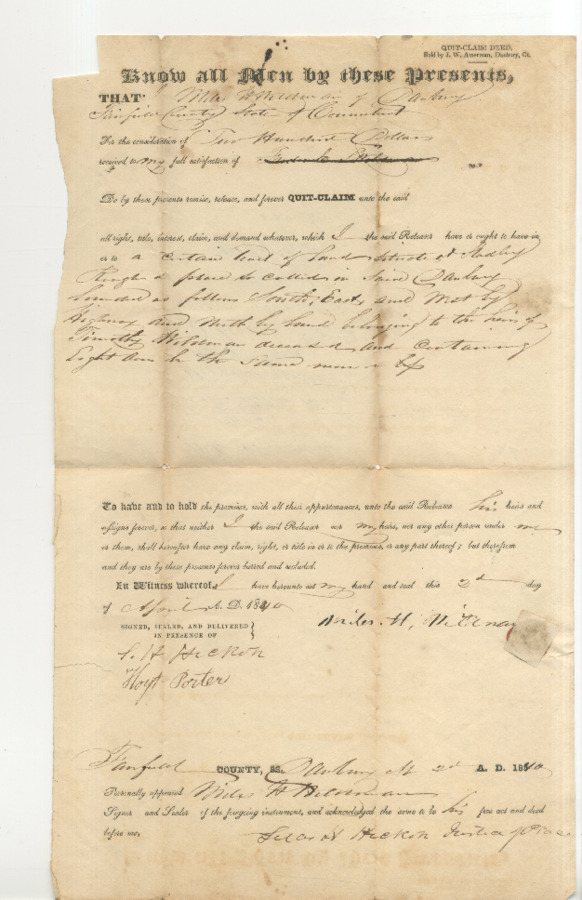 QUIT-CLAIM DEED.
Sold by J. W. Amerman, Danbury, Ct.
Know all Men by these Presents,
THAT I Miles H Wildman of Danbury
Fairfield County State of Connecticut
For the consideration of Two Hundred Dollars
received to my full satisfaction of
Do by these presents remise, release, and forever QUIT-CLAIM unto the said
all right, title, interest, claim, and demand whatever, which I the said Releasor have or ought to have in
or to a Certain tract of Land situate at
Plough a place so called in said Danbury
bounded as follows South, East, and West by
Highway and North by Land belonging to the heirs of
Timothy Wildman deceased and Containing
Eight Acres be the same more or less
To have and to hold the premises, with all their appurtenances, unto the said Releasee his heirs and
assigns forever, so that neither I the said Releasor nor my heirs, nor any other person under me
or them, shall hereafter have any claim, right, or title in or to the premises, or any part thereof; but therefrom
and they are by these presents forever barred and secluded.
In Witness whereof, I have hereunto set my hand and seal this 2d day
of April A. D. 1840
SIGNED, SEALED, AND DELIVERED
IN PRESENCE OF
Miles H. Wildman
S. H Hickok
Hoyt Porter
Fairfield COUNTY, SS. Danbury 2d A. D. 1840
Personally appeared Miles H Wildman
Signer and Sealer of the foregoing instrument, and acknowledged the same to be his free act and deed
before me,
Silas H Hickok Justice of Peace